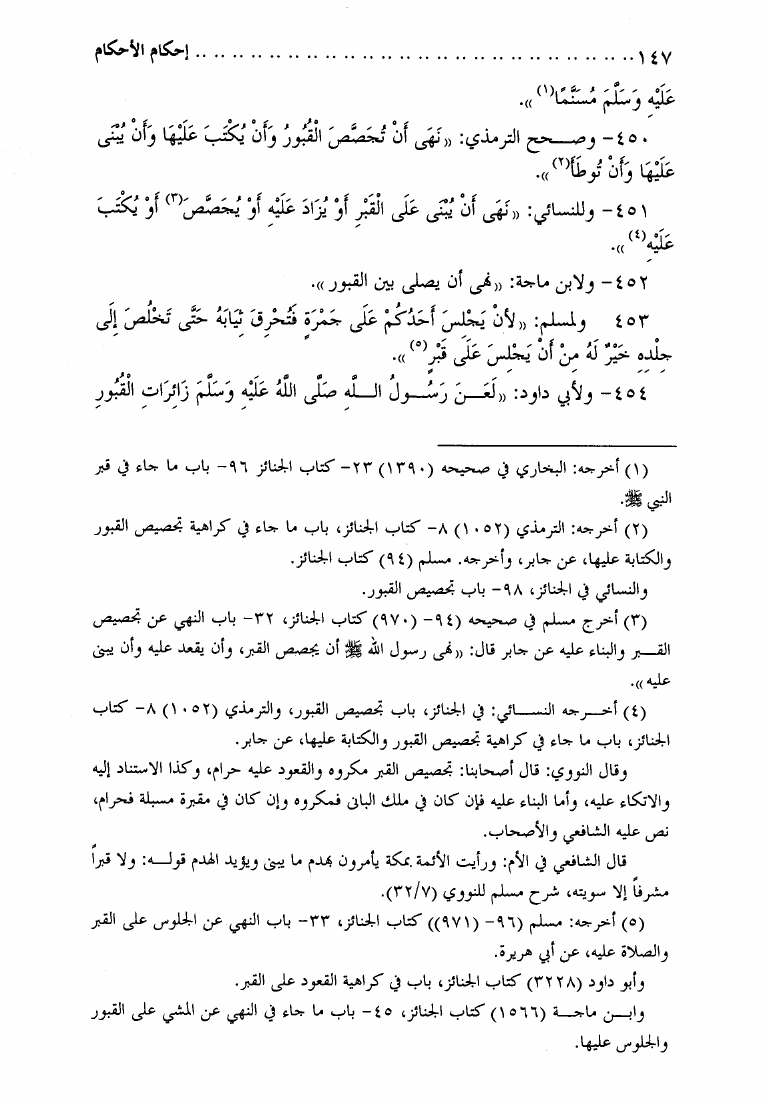 ١٤٧ .................................................. إحكام الأحكام
عَلَيْهِ وَسَلَّمَ مُسَنَّمًا(١)».
٤٥٠- وصـــحح الترمذي: «نَهَى أَنْ تُجَصَّصَ الْقُبُورُ وَأَنْ يُكْتَبَ عَلَيْهَا وَأَنْ يُبْنَى
عَلَيْهَا وَأَنْ تُوطَأَ(٢)».
٤٥١- وللنسائي: «نَهَى أَنْ يُبْنَى عَلَى الْقَبْرِ أَوْ يُزَادَ عَلَيْهِ أَوْ يُجَصَّصَ(٣) أَوْ يُكْتَبَ
عَلَيْهِ(٤)».
٤٥٢- ولابن ماجة: «نهى أن يصلى بين القبور».
٤٥٣ ولمسلم: «لأنْ يَجْلِسَ أَحَدُكُمْ عَلَى جَمْرَةٍ فَتُحْرِقَ ثِيَابَهُ حَتَّى تَخْلُصَ إِلَى
جِلْدِهِ خَيْرٌ لَهُ مِنْ أَنْ يَجْلِسَ عَلَى قَبْرٍ(٥)».
٤٥٤- ولأبي داود: «لَعَـــنَ رَسُـــولُ الـــلَّهِ صَلَّى اللَّهُ عَلَيْهِ وَسَلَّمَ زَائِرَاتِ الْقُبُورِ
(١) أخرجه: البخاري في صحيحه (١٣٩٠) ٢٣- كتاب الجنائز ٩٦- باب ما جاء في قبر
النبي ﷺ.
(٢) أخرجه: الترمذي (١٠٥٢) ٨- كتاب الجنائز، باب ما جاء في كراهية تجصيص القبور
والكتابة عليها، عن جابر، وأخرجه. مسلم (٩٤) كتاب الجنائز.
والنسائي في الجنائز، ٩٨- باب تجصيص القبور.
(٣) أخرج مسلم في صحيحه (٩٤- (٩٧٠) كتاب الجنائز، ٣٢- باب النهي عن تجصيص
القـــبر والبناء عليه عن جابر قال: «نهى رسول الله ﷺ أن يجصص القبر، وأن يقعد عليه وأن يبنى
عليه».
(٤) أخـــرجه النســـائي: في الجنائز، باب تجصيص القبور، والترمذي (١٠٥٢) ٨- كتاب
الجنائز، باب ما جاء في كراهية تجصيص القبور والكتابة عليها، عن جابر.
وقال النووي: قال أصحابنا: تجصيص القبر مكروه والقعود عليه حرام، وكذا الاستناد إليه
والاتكاء عليه، وأما البناء عليه فإن كان في ملك الباني فمكروه وإن كان في مقبرة مسبلة فحرام،
نص عليه الشافعي والأصحاب.
قال الشافعي في الأم: ورأيت الأئمة بمكة يأمرون بهدم ما يبنى ويؤيد الهدم قولـــه: ولا قبراً
مشرفاً إلا سويته، شرح مسلم للنووي (٣٢/٧).
(٥) أخرجه: مسلم (٩٦- (٩٧١)) كتاب الجنائز، ٣٣- باب النهي عن الجلوس على القبر
والصلاة عليه، عن أبي هريرة.
وأبو داود (٣٢٢٨) كتاب الجنائز، باب في كراهية القعود على القبر.
وابـــن ماجـــة (١٥٦٦) كتاب الجنائز، ٤٥- باب ما جاء في النهي عن المشي على القبور
والجلوس عليها.